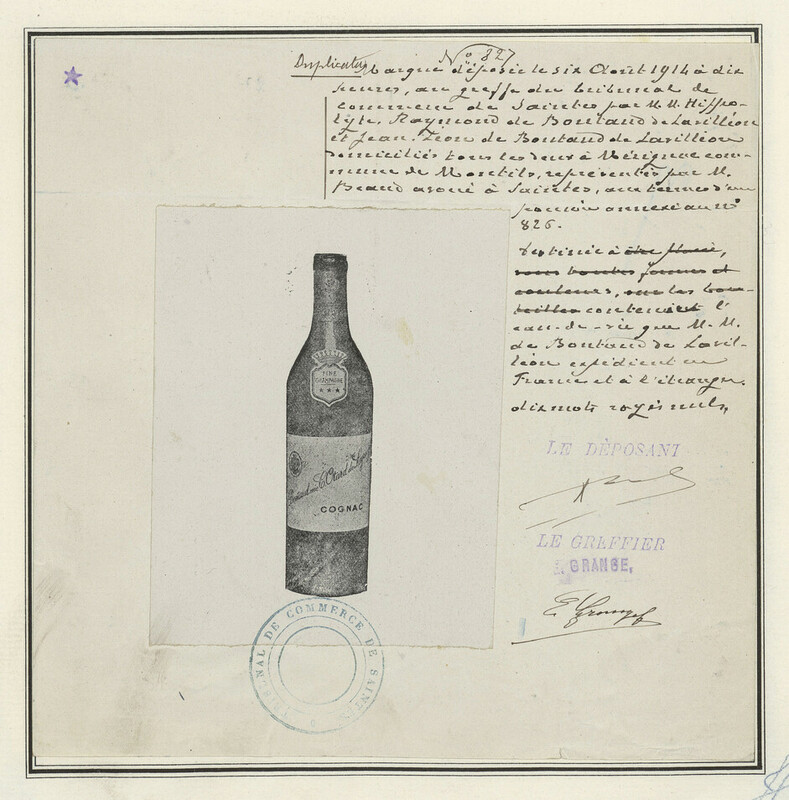 Duplicata
No 827
Marque déposée le six Août 1914 à dix
heures, au greffe du tribunal de
commerce de Saintes par M.M. Hippo-
lyte, Raymond de Boutaud de Lavilléon
et Jean-Léon de Boutaud de Lavilléon
domiciliés tous les deux à Mérignac com-
mune de Montils, représentés par M.
Beaud avoué à Saintes, aux termes d'un
pouvoir annexé au no
826.
Destinée à être placée,
sous toutes formes et
couleurs, sur les bou-
teilles contenant l'
eau-de-vie que M.M.
de Boutaud de Lavil-
léon expédient en
France et à l'étranger.
dix mots rayés nuls,
FINE
CHAMPAGNE
COGNAC
LE DÉPOSANT
LE GREFFIER
E. GRANGE,
TRIBUNAL DE COMMERCE DE SAINTES